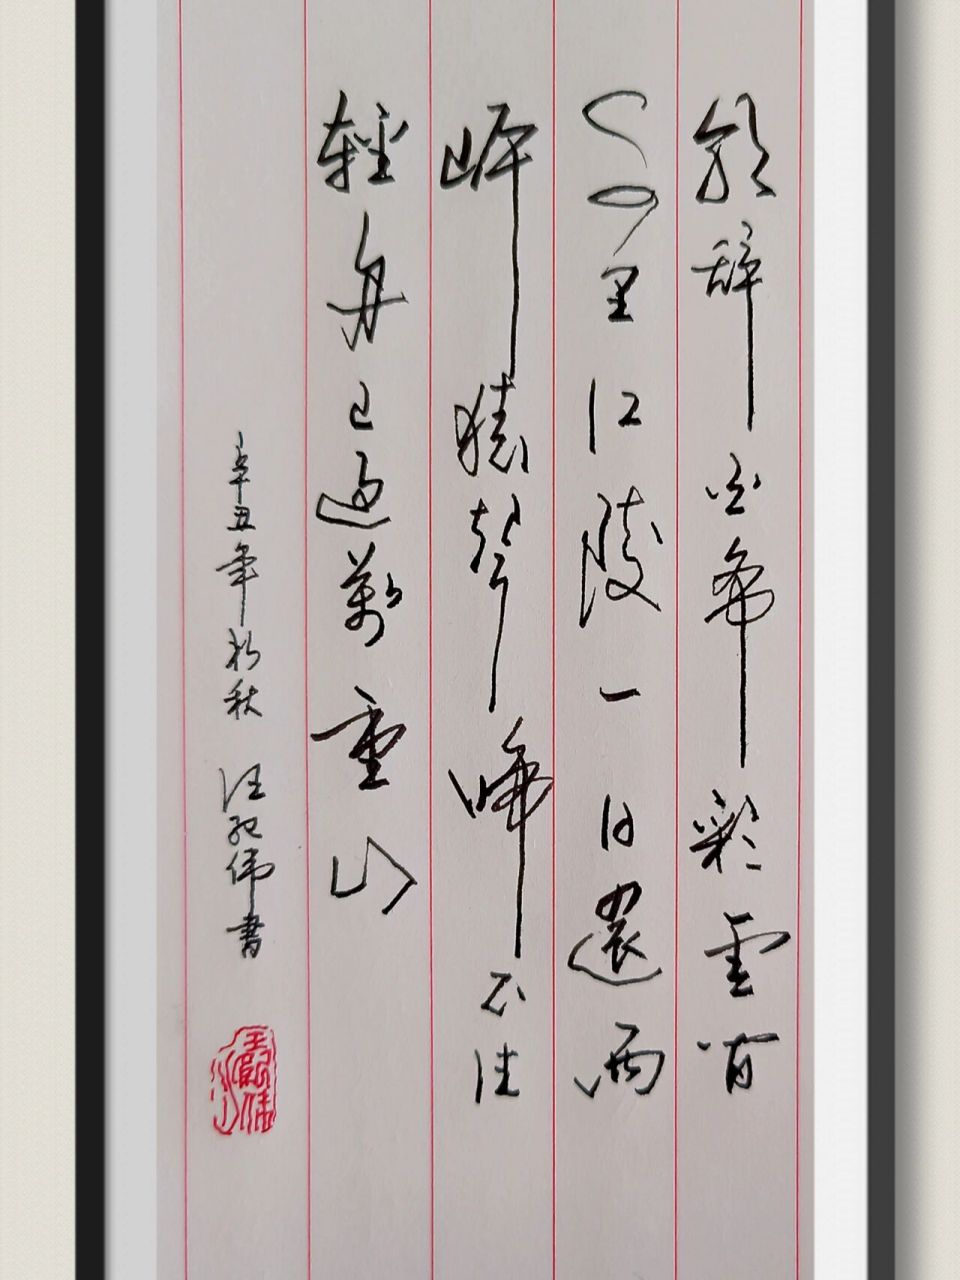 朝辞白帝彩雲间
千里江陵一日還两
岸猿聲啼不住
輕舟已过萬重山
辛丑年初秋 汪配伟書